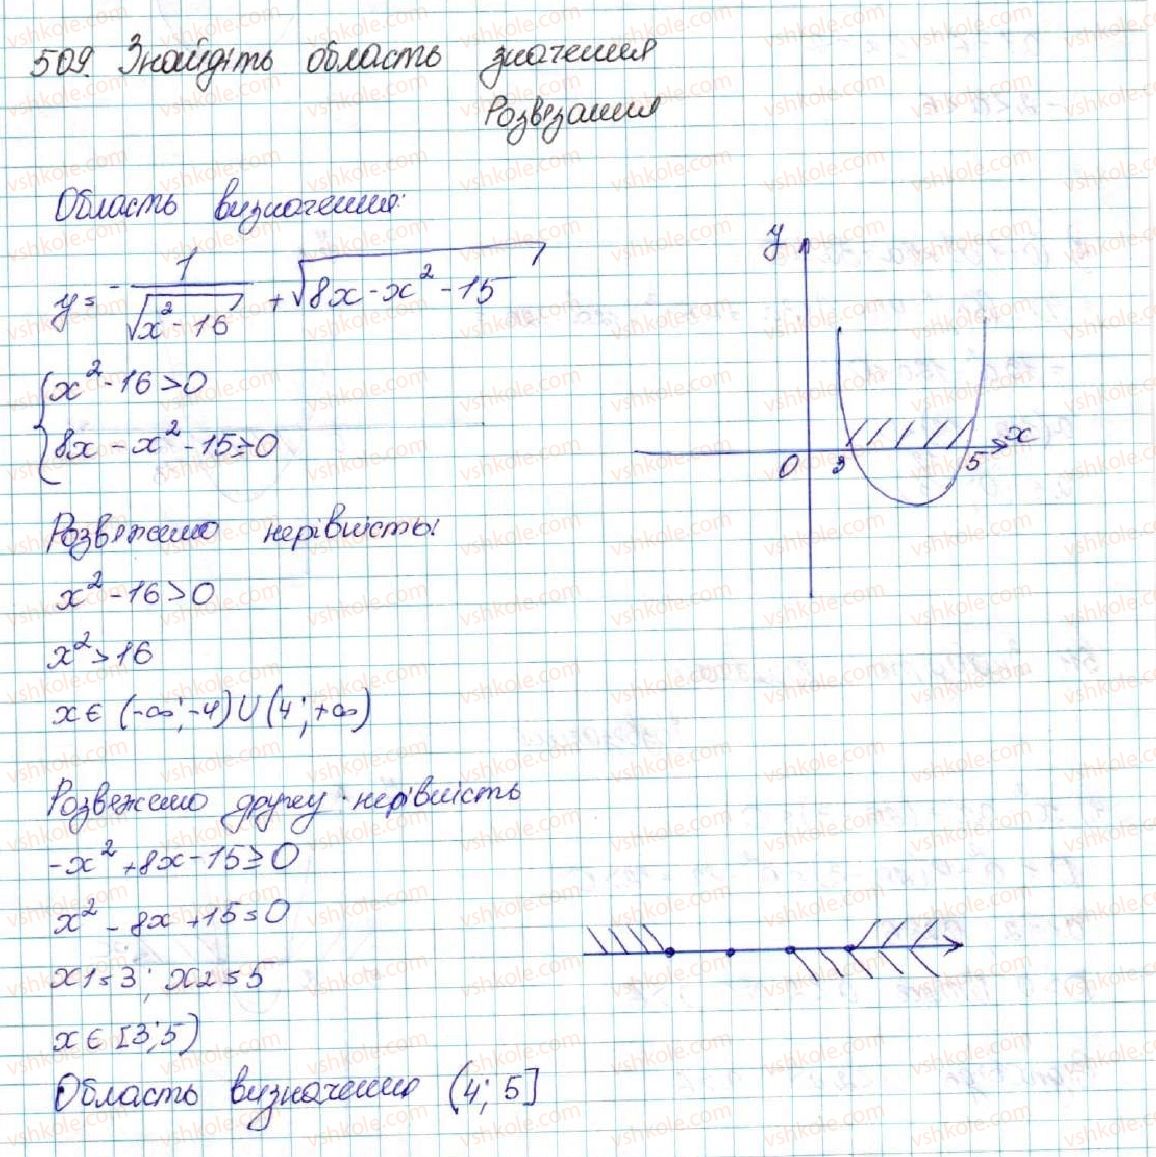 509. Знайдіть область значення
Розвязання
Область визначення:
y = - 1/√(x² - 16) + √(8x - x² - 15)
{ x² - 16 > 0
8x - x² - 15 ≥ 0
y
0 3 5 x
Розвяжемо нерівність:
x² - 16 > 0
x² > 16
x ∈ (-∞; -4) ∪ (4; +∞)
Розвяжемо другу нерівність
-x² + 8x - 15 ≥ 0
x² - 8x + 15 = 0
x1 = 3; x2 = 5
x ∈ [3; 5)
Область визначення (4; 5]
vshkole.com